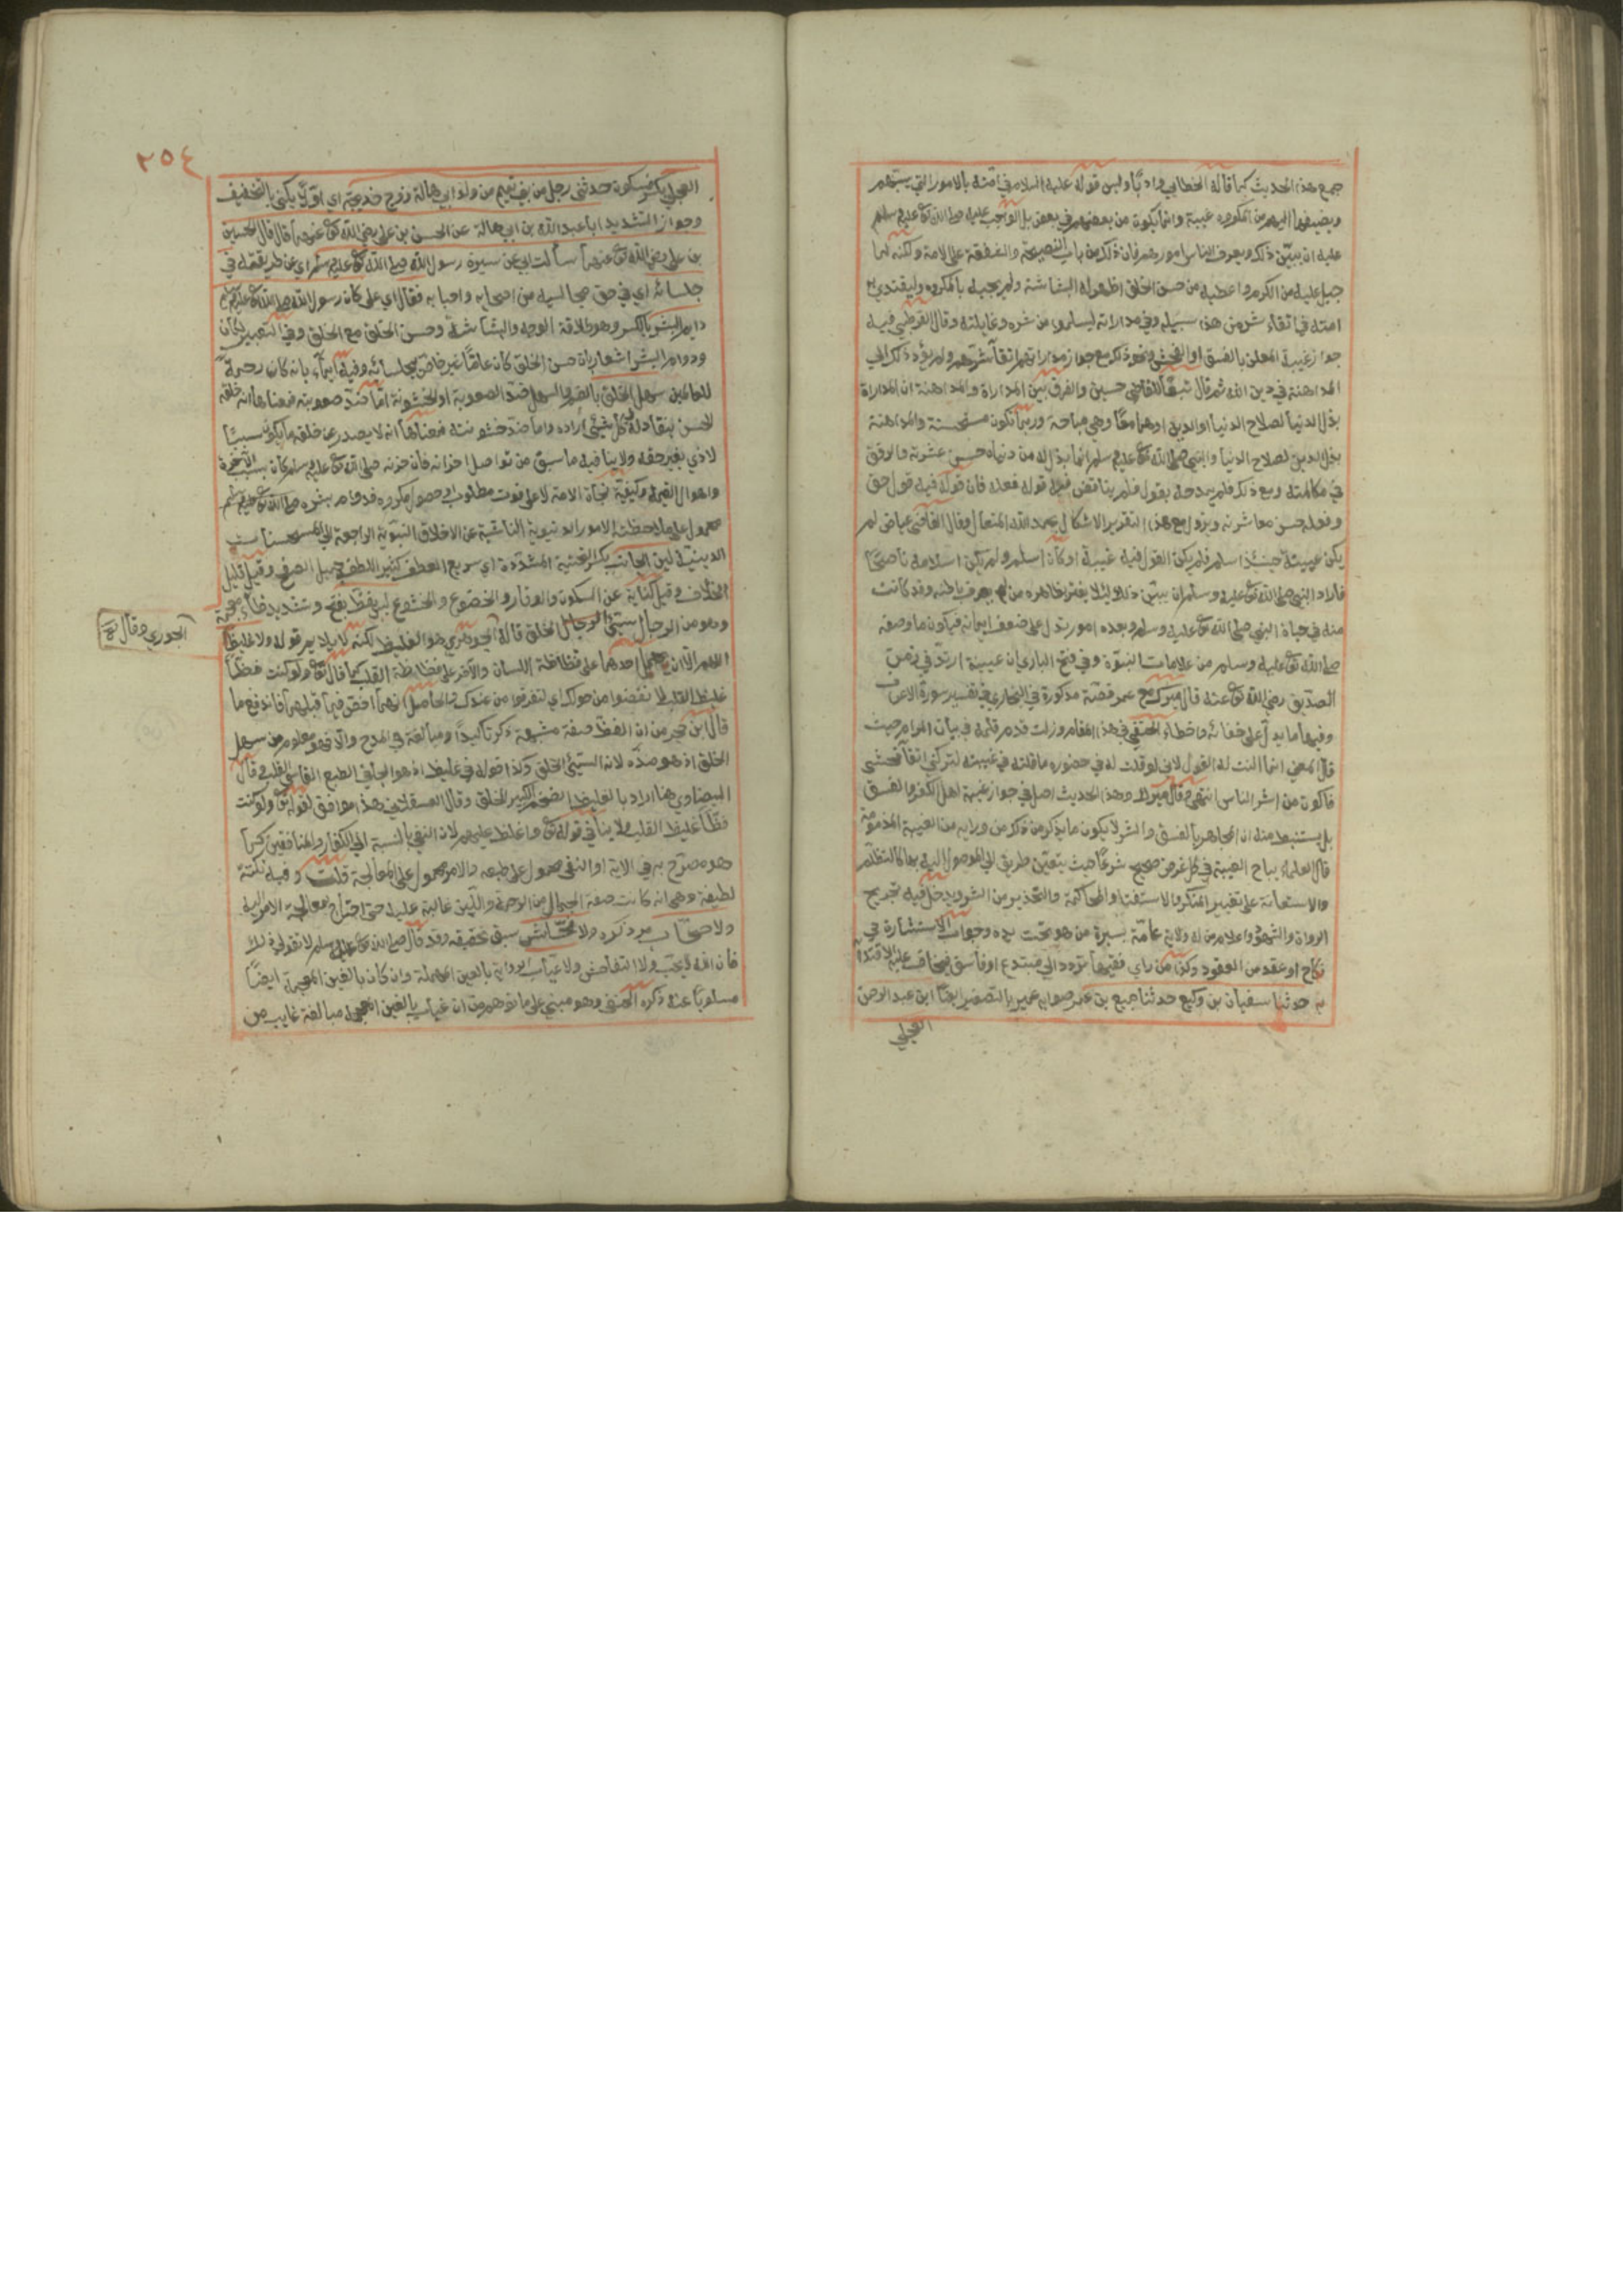 جمع هذا الحديث كما قاله الخطابي وادبا وليس قوله عليه السلام في امته بالامور التي يسمهم
ويضيفها اليهم من المكروه غيبة وانما يكون من بعضهم في بعض بل الواجب عليه صلى الله تعالى عليه وسلم
عليه ان يبين ذلك ويعرف الناس امورهم فان ذلك من باب النصيحة والشفقة على الامة ولكنه لما
جبل عليه من الكرم واعطيه من حسن الخلق اظهر له البشاشة ولم يجبه بالمكروه وليقتدي به
امته في اتقاء شر من هذا سبيله وفي مداراته ليسلموا من شره وغايلته وقال القرطبي فيه
جواز غيبة المعلن بالفسق او الفحش ونحو ذلك مع جواز مداراتهم اتقاء شرهم ولم يؤد ذلك الى
المداهنة في دين الله ثم قال تبعا للقاضي حسين والفرق بين المداراة والمداهنة ان المداراة
بذل الدنيا لصلاح الدنيا او الدين او هما معا وهي مباحة وربما تكون مستحسنة والمداهنة
بذل الدين لصلاح الدنيا والنبي صلى الله تعالى عليه وسلم انما بذل له من دنياه حسن عشرته والرفق
في مكالمته ومع ذلك فلم يمدحه بقول فلم يناقض فيه قوله فعله فان قوله فيه قول حق
وفعله حسن معاشرته ويزول مع هذا التقرير الاشكال بحمد الله المتعال وقال القاضي عياض لم
يكن عيينة حينئذ اسلم فلم يكن القول فيه غيبة او كان اسلم ولم يكن اسلامه ناصحا
فاراد النبي صلى الله تعالى عليه وسلم ان يبين ذلك لئلا يغتر بظاهره من لم يعرف باطنه وقد كانت
منه في حياة النبي صلى الله تعالى عليه وسلم وبعده امور تدل على ضعف ايمانه فيكون ما وصفه
صلى الله تعالى عليه وسلم من علامات النبوة وفي فتح الباري ان عيينة ارتد في زمن
الصديق رضي الله تعالى عنه قال ميرك مع عمر قصة مذكورة في البخاري في تفسير سورة الاعراف
وفيها ما يدل على جفائه واخطاء الحنفي في هذا المقام وزلت قدم قلمه في بيان المرام حيث
قال المعنى انما النت له القول لاني لو قلت له في حضوره ما قلته في غيبته لتركني اتقاء فحشي
فاكون من اشر الناس انتهى وقال ميرك وهذا الحديث اصل في جواز غيبة اهل الكفر والفسق
بل يستنبط منه ان المجاهر بالفسق والشر لا يكون ما يذكر من ذكر من ورايه من الغيبة المذمومة
قال العلماء يباح الغيبة في كل غرض صحيح شرعا حيث يتعين طريق الى الوصول اليه بها كالتظلم
والاستعانة على تغيير المنكر والاستفتاء والمحاكمة والتحذير من الشر ويدخل فيه تجريح
الرواة والشهود واعلام من له ولاية عامة بسيرة من هو تحت يده وجواب الاستشارة في
نكاح او عقد من العقود وكذا من راى فقيها يتردد الى مبتدع او فاسق فيخاف عليه الاقتداء
به حدثنا سفيان بن وكيع حدثنا جميع بن عمر صوابه عمير بالتصغير ايضا ابن عبد الرحمن
العجلي
٢٥٤
العجلي بكسر فسكون حدثني رجل من بني تميم من ولد ابي هالة زوج خديجة اي اولا يكنى بالتخفيف
وجواز التشديد ابا عبد الله عن ابن ابي هالة عن الحسن بن علي رضي الله تعالى عنهما قال قال الحسين
بن علي رضي الله تعالى عنهما سالت ابي عن سيرة رسول الله صلى الله تعالى عليه وسلم اي عن طريقته في
جلسائه اي في حق مجالسيه من اصحابه واحبابه فقال اي علي كان رسول الله صلى الله تعالى عليه وسلم
دايم البشر بالكسر وهو طلاقة الوجه والبشاشة وحسن الخلق مع الخلق وفي التعبير بكان
ودوام البشر اشعار بان حسن الخلق كان عاما غير خاص بجلسائه وفيه ايماء بانه كان رحمة
للعالمين سهل الخلق بالضم والسهل ضد الصعوبة او الخشونة اما ضد صعوبته فمعناها انه خلقه
الحسن ينقاد له في كل شيء اراده واما ضد خشونته فمعناها انه لا يصدر عن خلقه ما يكون سببا
لاذي بغير حقه ولا ينافيه ما سبق من تواصل احزانه فان حزنه صلى الله تعالى عليه وسلم كان بسبب الآخرة
واهوال القيمة وكيفية نجاة الامة لا على فوت مطلوب او حصول مكروه فدوام بشره صلى الله تعالى عليه وسلم
محمول على ملاحظته الامور الدنيوية الناشية عن الاخلاق النبوية الراجعة الى المستحسنات
الدينية لين الجانب بكسر التحتية المشددة اي سريع العطف كثير اللطف جميل الصفح وقيل قليل
الخلاف وقيل كناية عن السكون والوقار والخضوع والخشوع ليس بفظ بفتح وتشديد ظاء معجمة
وهو من الرجال سيئ الخلق قاله الجوهري هو الغليظ لكنه لا يلايم قوله ولا غليظ
الجزري وقال صح
اللهم الا ان يحمل احدهما على فظاظة اللسان والآخر على فظاظة القلب كما قال تعالى ولو كنت فظا
غليظ القلب لانفضوا من حولك اي لتفرقوا من عندك والحاصل انهما
قال ابن حجر من ان الفظ صفة مشبهة ذكر تاكيدا ومبالغة في المدح والا فهو معلوم من سهل
الخلق اذ هو ضده لانه السيئ الخلق وكذا قوله في غليظ اذ هو الجافي الطبع القاسي القلب وقال
البيضاوي هنا اراد بالغليظ الضخم الكبير الخلق وقال العسقلاني هذا موافق لقوله تعالى ولو كنت
فظا غليظ القلب ولا ينافي قوله تعالى واغلظ عليهم لان النفي بالنسبة الى الكفار والمنافقين كما
هو مصرح به في الاية او النفي محمول على طبعه والامر محمول على المعالجة قلت وفيه نكتة
لطيفة وهي انه كانت صفة الجمال من الرحمة واللين غالبة عليه حتى احتاج لمعالجة الامر اليه
ولا صخاب مر ذكره ولا فحاش سبق تحقيقه وقد قال صلى الله تعالى عليه وسلم لا تقولي ذلك
فان الله لا يحب ولا التفاحش ولا عياب الرواية بالعين المهملة وان كان بالغين المعجمة ايضا
مسلوبا عنه ذكره الحنفي وهو مبني على ما توهم من ان غياب بالغين المعجمة مبالغة غايب من